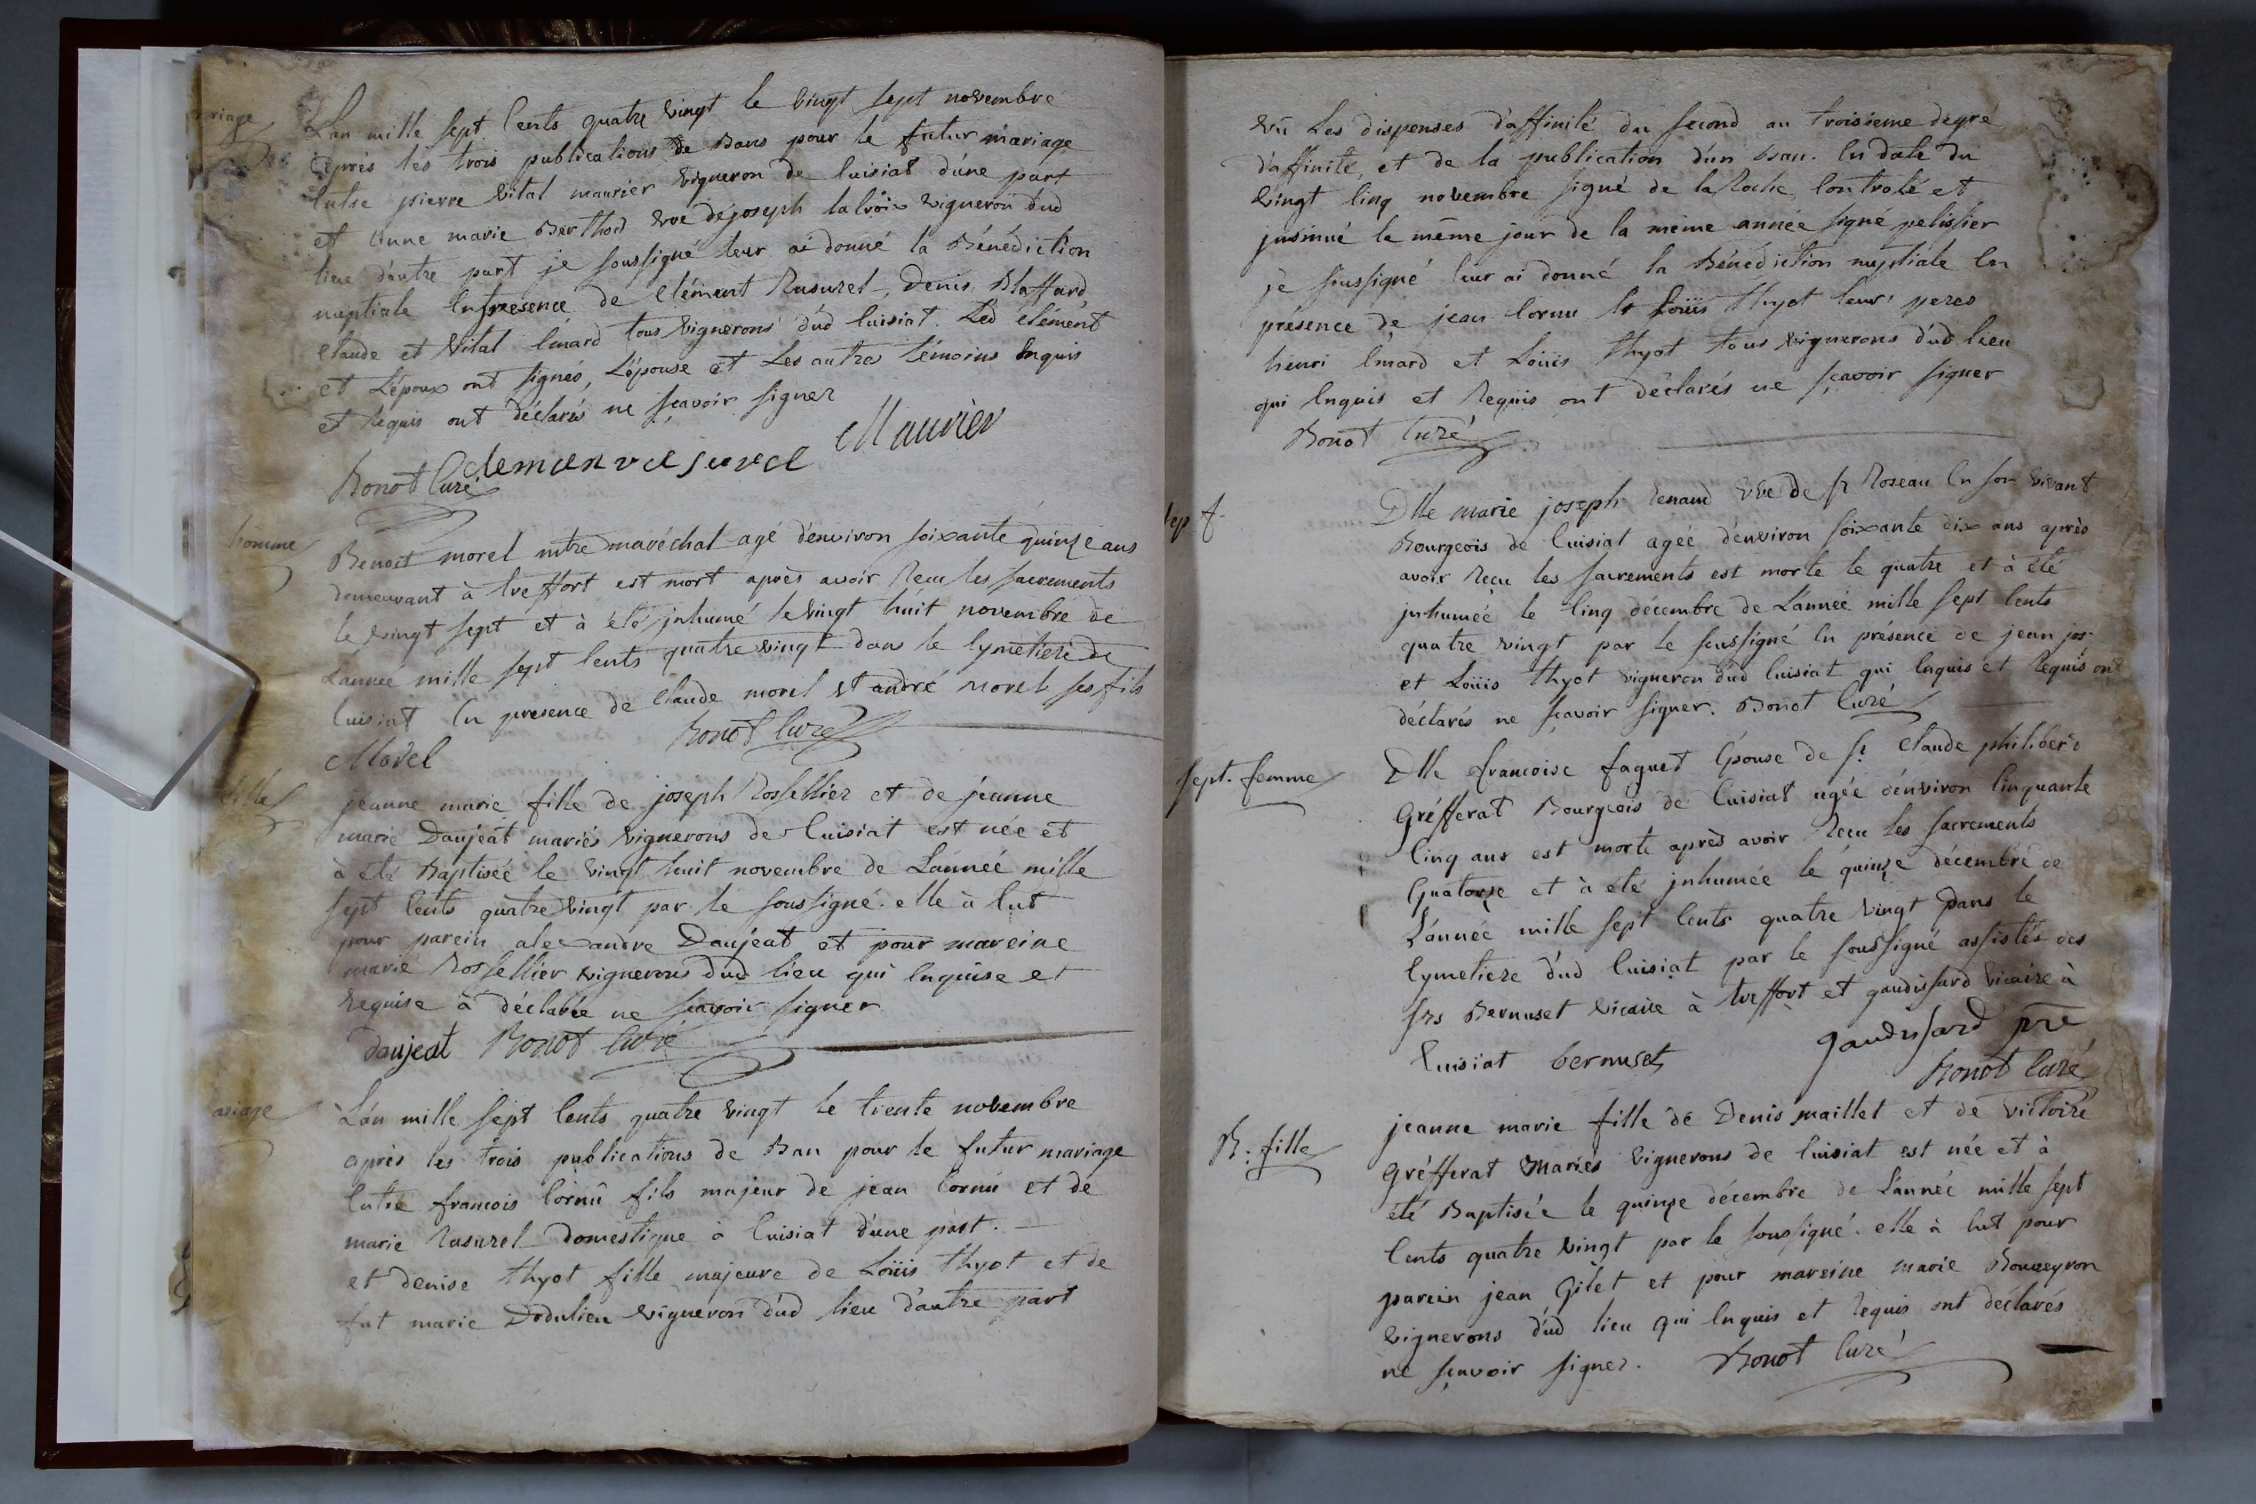 riage
L'an mille sept cents quatre vingt le vingt sept novembre
après les trois publications de Bans pour le futur mariage
entre pierre vital maurier vigneron de Cuisiat d'une part
et anne marie Berthod vve de joseph lacroix vigneron dud
lieu d'autre part je soussigné leur ai donné la Bénédiction
nuptiale en presence de Clément Rusurel, Denis Blaffard
Claude et vital émard tous vignerons dud Cuisiat. Led Clément
et L'époux ont signés, L'épouse et Les autres témoins enquis
et requis ont déclarés ne sçavoir signer
Maurier
Bonot Curé
homme
Benoit morel mtre maréchal agé d'environ soixante quinze ans
demeurant à treffort est mort après avoir Reçu les sacrements
le vingt sept et à été jnhumé le vingt huit novembre de
L'année mille sept cents quatre vingt dans le Cymetiere de
Cuisiat en presence de Claude morel et andré morel ses fils
Morel Bonot Curé
fille
jeanne marie fille de joseph Rossellier et de jeanne
marie Daujeat mariés vignerons de Cuisiat est née et
à été Baptisée le vingt huit novembre de L'année mille
sept cents quatre vingt par le soussigné. elle à eut
pour parein alexandre Daujeat et pour mareine
marie Rossellier vignerons dud lieu qui enquise et
Requise à déclarée ne sçavoir signer
Daujeat Bonot Curé
ariage
L'an mille sept cents quatre vingt le trente novembre
après les trois publications de Ban pour le futur mariage
entre francois Cornû fils majeur de jean Cornû et de
marie Rusurel Domestique à Cuisiat d'une part.
et denise thyot fille majeure de Loüis thyot et de
fut marie Dodulieu vigneron dud lieu d'autre part
vû Les dispenses d'affinité du second au troisieme degré
d'affinité, et de la publication d'un ban. en date du
vingt cinq novembre signé de la Roche, Controlé et
jnsinué le même jour de la même année signé pelissier
je soussigné leur ai donné la Bénédiction nuptiale en
présence de jean Cornu et Loüis thyot leurs peres
henri émard et Loüis thyot tous vignerons dud lieu
qui enquis et Requis ont déclarés ne sçavoir signer
Bonot Curé
sep f
Dlle marie joseph Renaud vve de sr Roseau en son vivant
Bourgeois de Cuisiat agée d'environ soixante dix ans après
avoir Reçu les sacrements est morte le quatre et à été
jnhumée le cinq décembre de L'année mille sept cents
quatre vingt par le soussigné en présence de jean jos
et Loüis thyot vigneron dud Cuisiat qui enquis et Requis ont
déclarés ne sçavoir signer. Bonot Curé
sept. femme
Dlle francoise faguet épouse de sr Claude philibert
Gréfferat Bourgeois de Cuisiat agée d'environ cinquante
cinq ans est morte après avoir Reçu les sacrements
Quatorze et à été jnhumée le quinze décembre de
L'année mille sept cents quatre vingt Dans le
Cymetiere dud Cuisiat par le soussigné assistés des
srs Bernuset vicaire à treffort et gaudissard vicaire à
Cuisiat bernuset gaudissard pre
Bonot Curé
B. fille
jeanne marie fille de Denis maillet et de victoire
Gréfferat Mariés vignerons de Cuisiat est née et à
été Baptisée le quinze décembre de L'année mille sept
cents quatre vingt par le soussigné. elle à eut pour
parein jean Gilet et pour mareine marie Bouveyron
vignerons dud lieu qui enquis et Requis ont déclarés
ne sçavoir signer. Bonot Curé